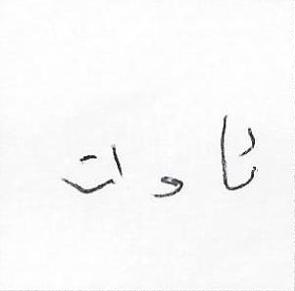 تاوات